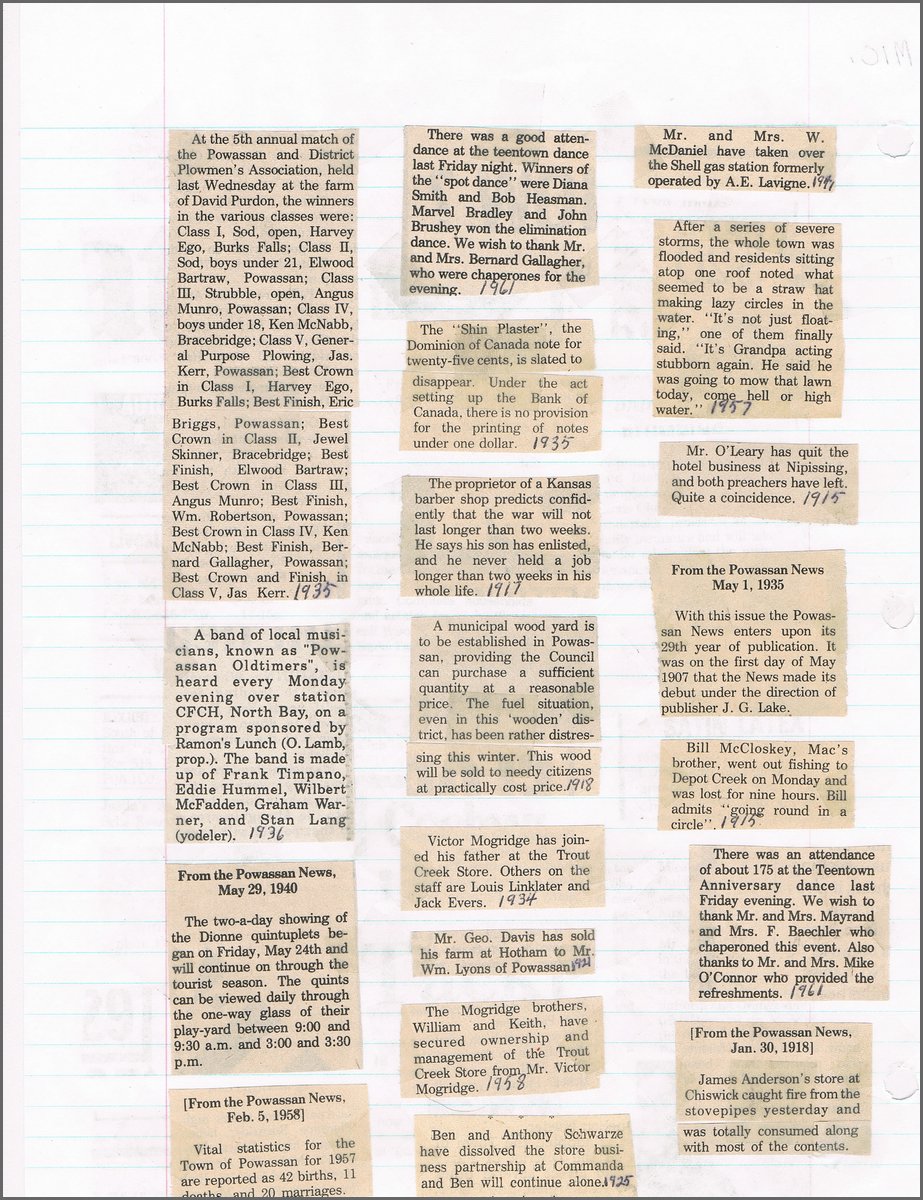 At the 5th annual match of
the Powassan and District
Plowmen's Association, held
last Wednesday at the farm
of David Purdon, the winners
in the various classes were:
Class I, Sod, open, Harvey
Ego, Burks Falls; Class II,
Sod, boys under 21, Elwood
Bartraw, Powassan; Class
III, Strubble, open, Angus
Munro, Powassan; Class IV,
boys under 18, Ken McNabb,
Bracebridge; Class V, Gener-
al Purpose Plowing, Jas.
Kerr, Powassan; Best Crown
in Class I, Harvey Ego,
Burks Falls; Best Finish, Eric
Briggs, Powassan; Best
Crown in Class II, Jewel
Skinner, Bracebridge; Best
Finish, Elwood Bartraw;
Best Crown in Class III,
Angus Munro; Best Finish,
Wm. Robertson, Powassan;
Best Crown in Class IV, Ken
McNabb; Best Finish, Ber-
nard Gallagher, Powassan;
Best Crown and Finish in
Class V, Jas Kerr. 1935
A band of local musi-
cians, known as "Pow-
assan Oldtimers", is
heard every Monday
evening over station
CFCH, North Bay, on a
program sponsored by
Ramon's Lunch (O. Lamb,
prop.). The band is made
up of Frank Timpano,
Eddie Hummel, Wilbert
McFadden, Graham War-
ner, and Stan Lang
(yodeler). 1936
From the Powassan News,
May 29, 1940
The two-a-day showing of
the Dionne quintuplets be-
gan on Friday, May 24th and
will continue on through the
tourist season. The quints
can be viewed daily through
the one-way glass of their
play-yard between 9:00 and
9:30 a.m. and 3:00 and 3:30
p.m.
[From the Powassan News,
Feb. 5, 1958]
Vital statistics for the
Town of Powassan for 1957
are reported as 42 births, 11
deaths, and 20 marriages.
There was a good atten-
dance at the teentown dance
last Friday night. Winners of
the "spot dance" were Diana
Smith and Bob Heasman.
Marvel Bradley and John
Brushey won the elimination
dance. We wish to thank Mr.
and Mrs. Bernard Gallagher,
who were chaperones for the
evening. 1961
The "Shin Plaster", the
Dominion of Canada note for
twenty-five cents, is slated to
disappear. Under the act
setting up the Bank of
Canada, there is no provision
for the printing of notes
under one dollar. 1935
The proprietor of a Kansas
barber shop predicts confid-
ently that the war will not
last longer than two weeks.
He says his son has enlisted,
and he never held a job
longer than two weeks in his
whole life. 1917
A municipal wood yard is
to be established in Powas-
san, providing the Council
can purchase a sufficient
quantity at a reasonable
price. The fuel situation,
even in this 'wooden' dis-
trict, has been rather distres-
sing this winter. This wood
will be sold to needy citizens
at practically cost price. 1918
Victor Mogridge has join-
ed his father at the Trout
Creek Store. Others on the
staff are Louis Linklater and
Jack Evers. 1934
Mr. Geo. Davis has sold
his farm at Hotham to Mr.
Wm. Lyons of Powassan
The Mogridge brothers,
William and Keith, have
secured ownership and
management of the Trout
Creek Store from Mr. Victor
Mogridge. 1958
Ben and Anthony Schwarze
have dissolved the store busi-
ness partnership at Commanda
and Ben will continue alone. 1925
Mr. and Mrs. W.
McDaniel have taken over
the Shell gas station formerly
operated by A.E. Lavigne.
After a series of severe
storms, the whole town was
flooded and residents sitting
atop one roof noted what
seemed to be a straw hat
making lazy circles in the
water. "It's not just float-
ing," one of them finally
said. "It's Grandpa acting
stubborn again. He said he
was going to mow that lawn
today, come hell or high
water." 1957
Mr. O'Leary has quit the
hotel business at Nipissing,
and both preachers have left.
Quite a coincidence. 1915
From the Powassan News
May 1, 1935
With this issue the Powas-
san News enters upon its
29th year of publication. It
was on the first day of May
1907 that the News made its
debut under the direction of
publisher J. G. Lake.
Bill McCloskey, Mac's
brother, went out fishing to
Depot Creek on Monday and
was lost for nine hours. Bill
admits "going round in a
circle". 1915
There was an attendance
of about 175 at the Teentown
Anniversary dance last
Friday evening. We wish to
thank Mr. and Mrs. Mayrand
and Mrs. F. Baechler who
chaperoned this event. Also
thanks to Mr. and Mrs. Mike
O'Connor who provided the
refreshments. 1961
[From the Powassan News,
Jan. 30, 1918]
James Anderson's store at
Chiswick caught fire from the
stovepipes yesterday and
was totally consumed along
with most of the contents.